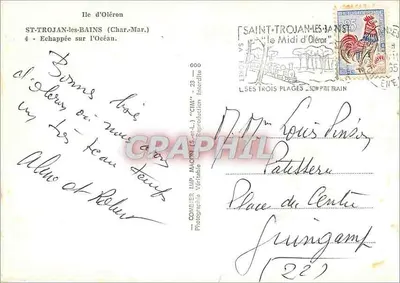 Ile d'Oléron
ST-TROJAN-les-BAINS (Char.-Mar.)
4 - Echappée sur l'Océan.
SAINT-TROJAN-LES-BAINS
"le Midi d'Oléron"
SES TROIS PLAGES _ SON P'TIT TRAIN
0,25
Bonne bise
d'Oléron où nous avons
un très beau temps
Aline et Robert
COMBIER IMP. MACON (S.-L.) "CIM"
Photographie Véritable - Reproduction Interdite
M. Mme Louis
Patissers
Place du Centre
Guingamp
(22)
CARTE-PRECIEUSE